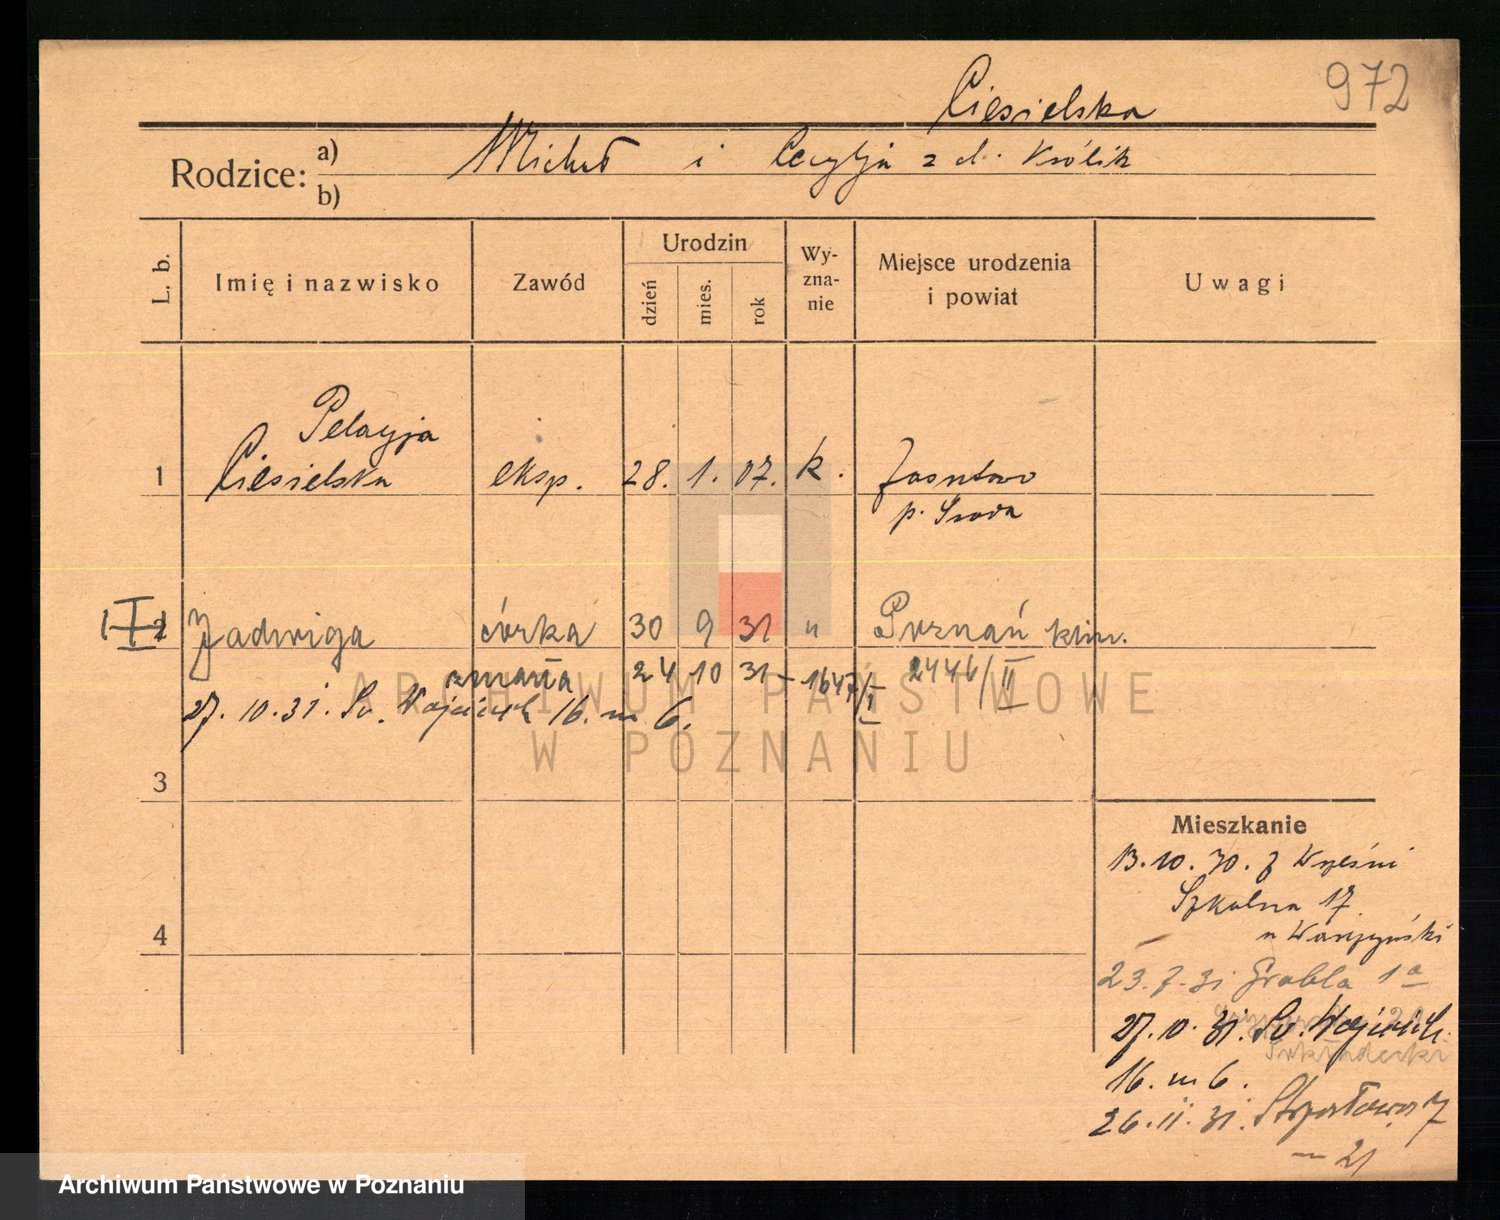 972
Ciesielska
Rodzice: a) Michał i Cecylja z d. Królik
b)
L. b.
Imię i nazwisko
Zawód
Urodzin
dzień
mies.
rok
Wy-
zna-
nie
Miejsce urodzenia
i powiat
Uwagi
Pelagja
1 Ciesielska eksp. 28. 1. 07. k.
p. Środa
2 Jadwiga córka 30 9 31 " Poznań
zmarła 24 10 31 - 1647/I 2446/II
27. 10. 31. Św. Wojciech 16. m 6.
3
4
Mieszkanie
13. 10. 30. z Wrześni
Szkolna 17
23. 7. 31 Grobla 1a
27. 10. 31. Św. Wojciech
16. m 6.
26. 11. 31. Strzałowa 7
m 21
ARCHIWUM PAŃSTWOWE
W POZNANIU
Archiwum Państwowe w Poznaniu